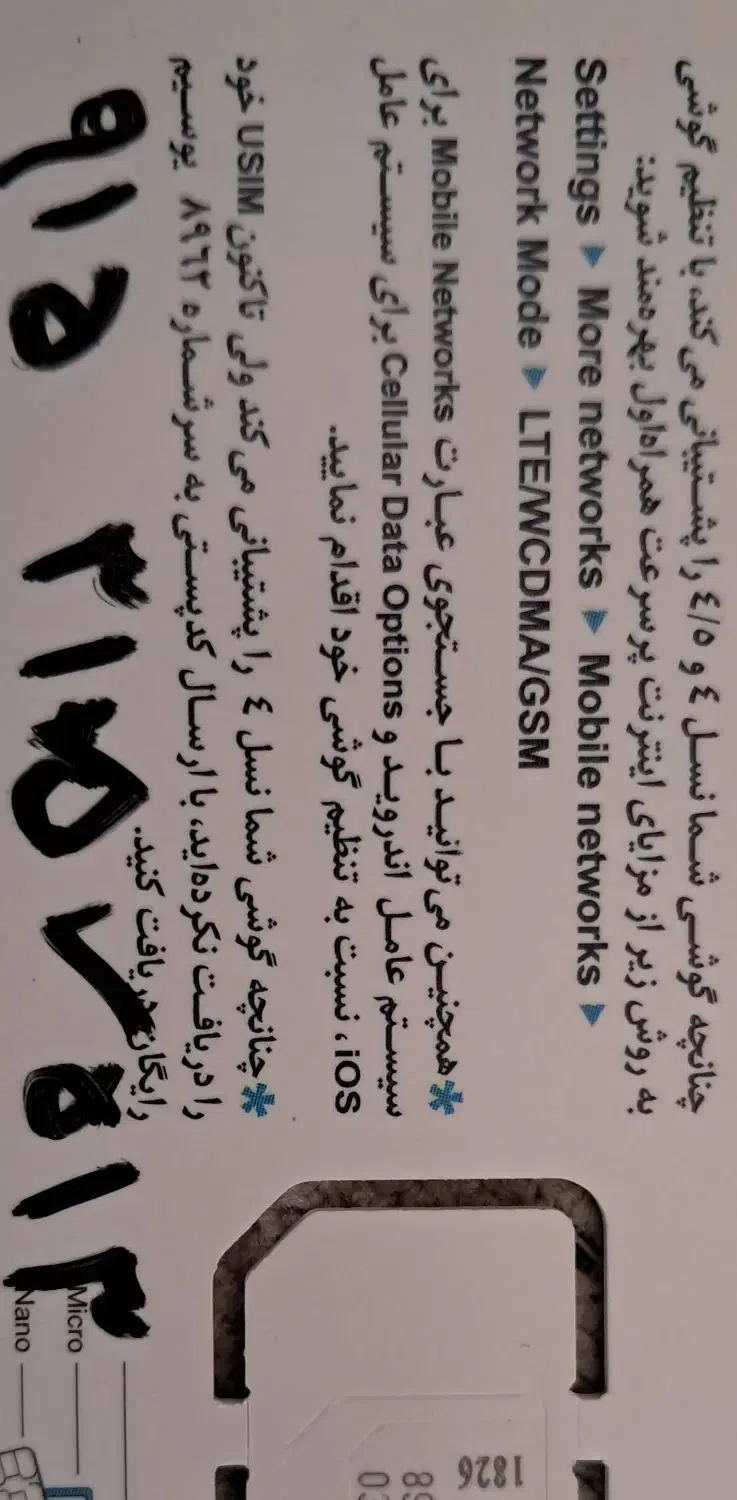 چنانچه گوشی شما نسل ٤ و ٤/٥ را پشتیبانی می‌کند، با تنظیم گوشی
به روش زیر از مزایای اینترنت پرسرعت همراه‌اول بهره‌مند شوید:
Settings ▶ More networks ▶ Mobile networks ▶
Network Mode ▶ LTE/WCDMA/GSM
*همچنین می‌توانید با جستجوی عبارت Mobile Networks برای
سیستم عامل اندروید و Cellular Data Options برای سیستم عامل
iOS، نسبت به تنظیم گوشی خود اقدام نمایید.
*چنانچه گوشی شما نسل ٤ را پشتیبانی می‌کند ولی تاکنون USIM خود
را دریافت نکرده‌اید، با ارسال کدپستی به سرشماره ۸۹۶۲ یوسیم
رایگان دریافت کنید.
۹۱۵ ۲۱۵۷۵۱۲
Micro
Nano
1826